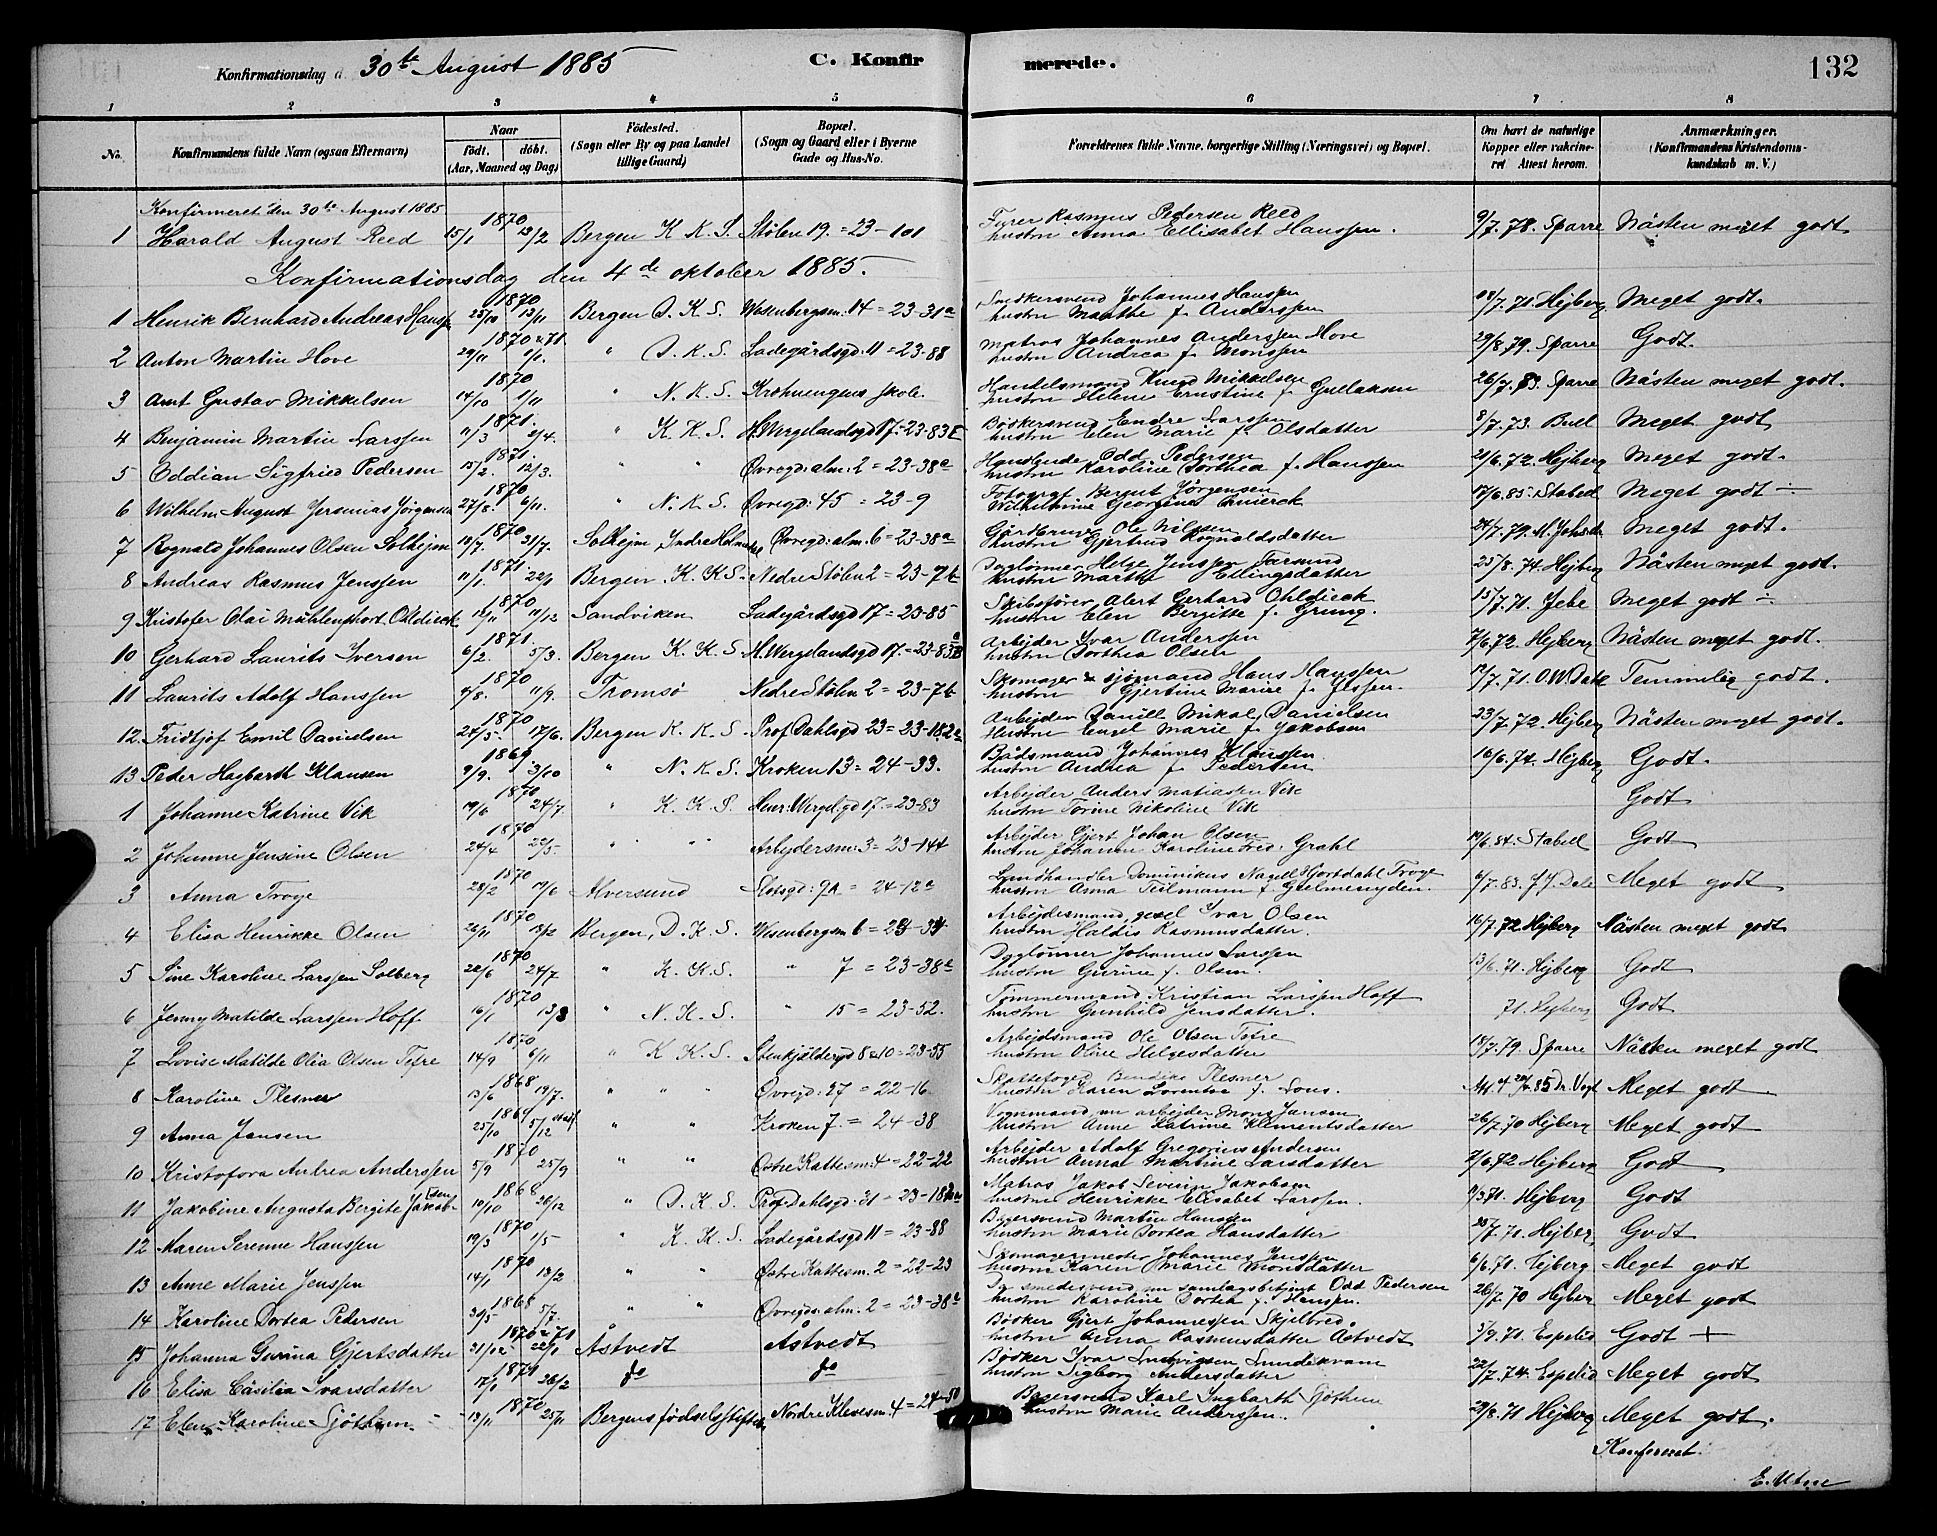 Konfirmationsdag d. 30te August 1885 C. Konfirmerede. 132
1 2 3 4 5 6 7 8
No. Konfirmandens fulde Navn (ogsaa Efternavn) Naar født. døbt. (Aar, Maaned og Dag) Fødested. (Sogn eller By og paa Landet tillige Gaard) Bopæl. (Sogn og Gaard eller i Byerne Gade og Hus-No. Forældrenes fulde Navne, borgerlige Stilling (Næringsvei) og Bopæl. Om havt de naturlige Kopper eller vakcineret Attest herom. Anmærkninger. (Konfirmandens Kristendomskundskab m. V.)
Konfirmeret den 30te August 1885
1 Harald August Reed 1870 15/1 13/2 Bergen K. K. S. Stølen 19. = 23-101 Fyrer Rasmus Pedersen Reed hustru Anna Ellisabet Hanssen. 9/7.78. Sparre Nästen meget godt
Konfirmationsdag den 4de oktober 1885.
1 Henrik Bernhard Andreas Hanss 1870 25/10 13/11 Bergen D. K. S. Wesenbergsm: 14 = 23-31a Snedkersvend Johannes Hanssen hustru Marthe f. Anderssen /7.71. Hejberg Meget godt.
2 Anton Martin Hove 1870 & 71 29/11 1/1. " D. K. S. Ladegårdsgd: 11 = 23-88 Matros Johannes Anderssen Hove hustru Andrea f. Monssen 29/8.79. Sparre Godt.
3 Amt Gustav Mikkelsen 1870 14/10 1/11 " N. K. S. Krohnengens skole. Handelsmand Knud Mikkelsen hustru Helene Ernstine f. Gullaksen 26/7.83. Sparre Nästen meget godt.
4 Benjamin Martin Larssen 1871. 11/3 2/4. " K. K. S. H. Wergelandsgd 17. = 23-83E Bödkersvend Endre Larssen hustru Elen Marie f. Olsdatter 8/7.73. Bull Meget godt
5 Oddian Sigfried Pedersen 1871. 15/2. 12/3. " " Øvregd: alm: 2 = 23-38a Handlende Odd Pedersen hustru Karoline Dorthea f. Hanssen 21/6.72. Hejberg Meget godt.
6 Wilhelm August Jeremias Jörgensen 1870 27/8. 6/11. " N. K. S. Øvregd: 45 = 23-9 Fotograf Bernt Jörgensen Wilhelmine Georgine 17/6.85. Stabell Meget godt ÷
7 Rognald Johannes Olsen Solhejm 1870 10/7. 31/7. Solhejm, Indre Øvregd: alm: 6 = 23-38a Gårdbruger Ole Nilssen hustru Gjertrud Rognaldsdatter 24/7.79. M. Meget godt.
8 Andreas Rasmus Jenssen 1871. 11/1. 22/1 Bergen K. K. S. Nedre Stölen 2 = 23-7b Dagløner Helge Jenssen hustru Marthe Ellingsdatter 25/8.74. Hejberg Nästen meget godt.
9 Kristofer Olai Mühlenphort Ohldieck 1870 11/11 11/12 Sandviken Ladegårdsgd 17 = 23-85 Skibsförer Alert Gerhard Ohldieck hustru Elen Bergitte f. Grung. 15/7.71. Jebe Meget godt ÷
10 Gerhard Laurits Iversen 1871. 6/2. 5/3. Bergen K. K. S. H. Wergelandsgd 17. = 23-83 Arbejder Ivar Anderssen hustru Dorthea Olsen 7/6.72. Hejberg Nästen meget godt.
11 Laurits Adolf Hanssen 1870 9/8. 11/9. Tromsö Nedre Stölen 2 = 23-7b Skomager & sjömand Hans Hanssen hustru Gjertine Marie f. 12/7.71. O.W. Dahl Temmelig godt.
12. Fridtjof Emil Danielsen 1870 24/5. 17/6. Bergen K. K. S. Prof. Dahlsgd 23 = 23-182a Arbejder Daniel Nikol. Danielsen Hustru Engel Marie f. Jakobsen 23/7.72. Hejberg Nästen meget godt.
13 Peder Hagbarth Klausen 1869 9/9. 3/10 " N. K. S. Kroken 13 = 24-33. Bådsmand Johannes Klaussen hustru Andrea f. Pedersen 16/6.72. Hejberg Godt.
1 Johanne Katrine Vik 1870 19/6 24/7. " K. K. S. Henr: Wergel: gd 17. = 23-83 Arbejder Anders Matiassen Vik hustru Torine Nikoline Vik Godt
2 Johanne Jensine Olsen 1870 24/4 22/5. " " Arbejdersm: 3 = 23-144 Arbejder Gjert Johan Olsen hustru Johanne Karoline Fred. Grahl 19/6.84. Stabell Godt
3 Anna Troye 1870 28/2 19/6 Alversund Slotsgd: 9A = 24-12a Landhandler Dominikus Nagell Hjortdahl Troye hustru Anna Teilmann f. 6/7.83. J. J. Dale Meget godt
4 Elisa Henrikke Olsen 1870 26/11 13/2 Bergen, D. K. S. Wesenbergsm 6 = 23-34 Arbejdesmand, gesel Ivar Olsen hustru Haldis Rasmusdatter. 16/7.72 Hejberg Nästen meget godt
5 Sine Karoline Larssen Solberg 1870 22/6 24/7 " K. K. S. " 7 = 23-38a Dagløner Johannes Larssen hustru Gurine f. Olsen. 13/6.71. Hejberg Godt
6 Jenny Matilde Larssen Hoff 1870 16/1 13/3 " N. K. S. " 15 = 23-52. Tömmermand Kristian Larssen Hoff hustru Gunhild Jensdatter. 71. Hejberg Godt
7 Lovise Matilde Olia Olsen Tofre 1870 14/9 6/11 " K. K. S. Stenkjældergd 8 & 10 = 23-55 Arbejdsmand Ole Olsen Tofre hustru Oline Helgesdatter 18/7.79. Sparre Nästen meget godt
8 Karoline Plesner 1868 13/6 19/7. " " Øvregd: 27 = 22-16 Skattefoged Bendiks Plesner hustru Karen Lorentse f. Lous. 85 Dr. Vogt Meget godt
9 Anna Jansen 1869 25/10 5/12 " " Kroken 7. = 24-38 Vognmand nu arbejder Mons Jansen hustru Anne Katrine Klementsdatter 26/7.70 Hejberg Meget godt
10 Kristofora Andrea Anderssen 1870 5/9 25/9 " " Østre Kattesm: 4 = 22-22 Arbejder Adolf Gregorius Andersen hustru Anna Martine Larsdatter 7/6.72 Hejberg Godt
11 Jakobine Augusta Bergite Jakobsen 1868 10/10 26/12 " D. K. S. Prof. Dahlsgd: 31 = 23-18 Matros Jakob Severin Jakobsen hustru Henrikke Elisabet Larssen. 1/3 71. Hejberg Godt
12 Maren Serenne Hanssen 1870 19/3 1/5 " K. K. S. Ladegårdsgd 11 = 23-88 Bagersvend Martin Hanssen hustru Marie Dortea Hansdatter 25/7.71. Hejberg Godt
13 Anne Marie Jenssen 1870 14/1 13/2 " " Østre Kattesm. 2 = 22-23 Skomagermester Johannes Jenssen hustru Karen Marie Monsdatter 6/6.71. Hejberg Meget godt
14 Karoline Dortea Pedersen 1868 30/5 5/7. " " Øvregds: alm: 2 = 23-38a smedesvend nu samlagsbetjent Odd Pedersen hustru Karoline Dortea f. Hanssen. 26/7.70 Hejberg Meget godt
15 Johanna Gurina Gjertsdatter 1870 & 71 21/12 22/1 Åstvedt Åstvedt Bödker Gjert Johannessen Skjelbred. hustru Anna Rasmusdatter Åstvedt 5/9.71. Espelid Godt +
16 Elisa Cäsilia Ivarsdatter 1871 17/1 26/2 do do Bödker Ivar Ludvigsen Lundekvam hustru Sigborg Andersdatter 22/7.74. Espelid Meget godt
17 Elen Karoline Sjöthun 1870 13/11 25/11 Bergens födselsstiftelse Nordre Klosterm. 4 = 24-50 Bagersvend Karl Ingbarth Sjöthun hustru Marie Anderssen. 29/8.71 Hejberg Meget godt.
Konfereret.
E. Utne